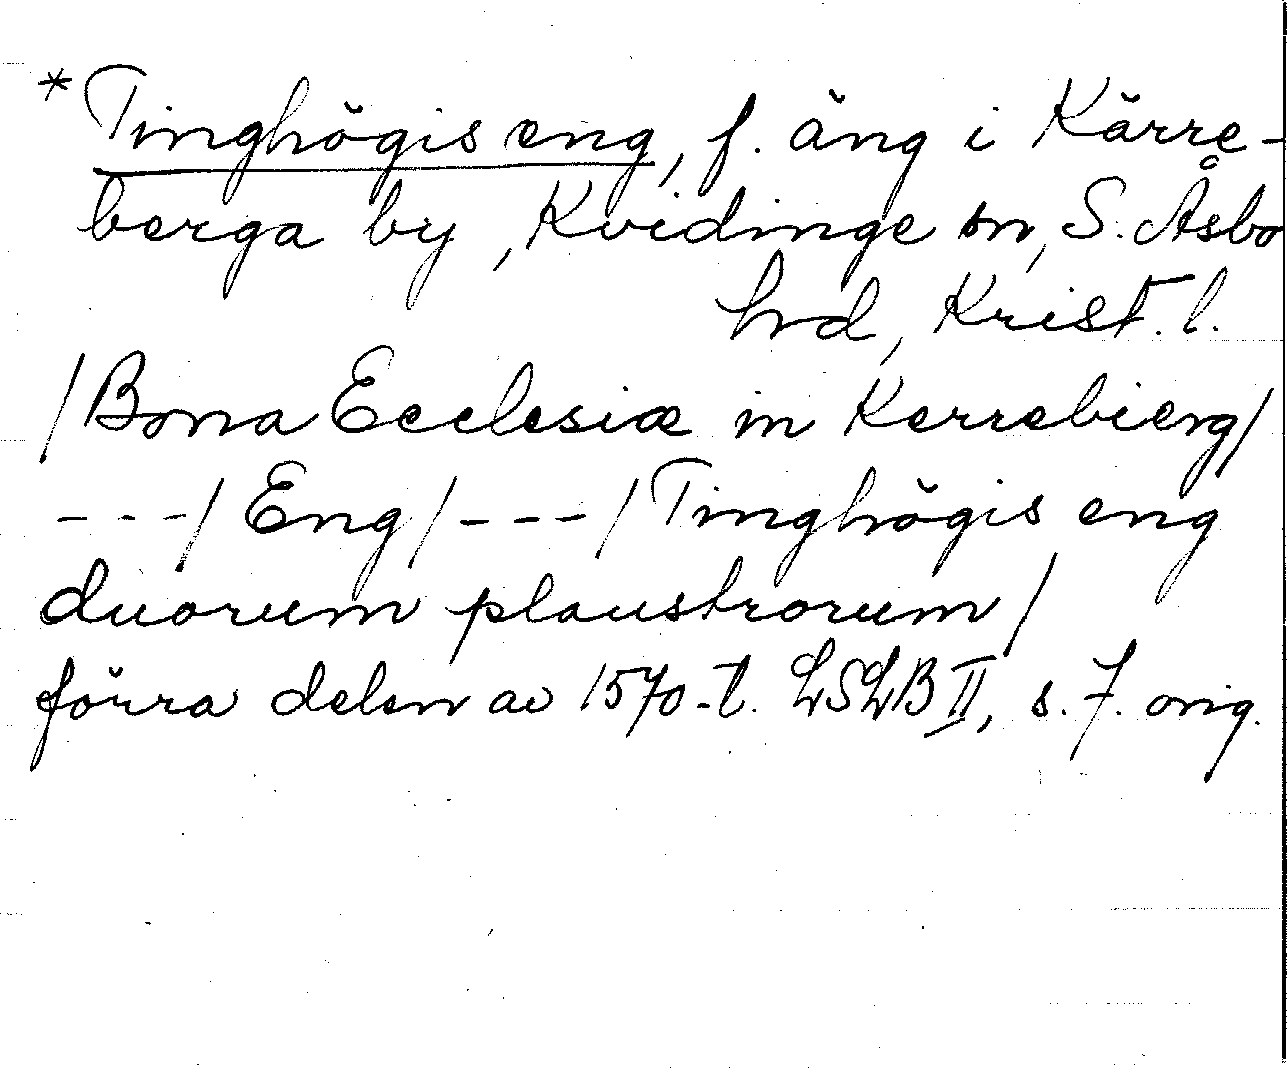 *Tinghögis eng, f. äng i Kärre-
berga by, Kvidinge sn, S. Åsbo
hrd, Krist. l.
/Bona Ecclesiæ in Kerrebierg/
---/Eng/---/Tinghögis eng
duorum plaustrorum/
förra delen av 1570-t. LSLB II, s. 7. orig.